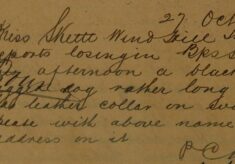 27 Oct
Miss Skett Wind Mill
reports losing in
afternoon a black
dog rather long
leather collar on
with above name
address on it
P C